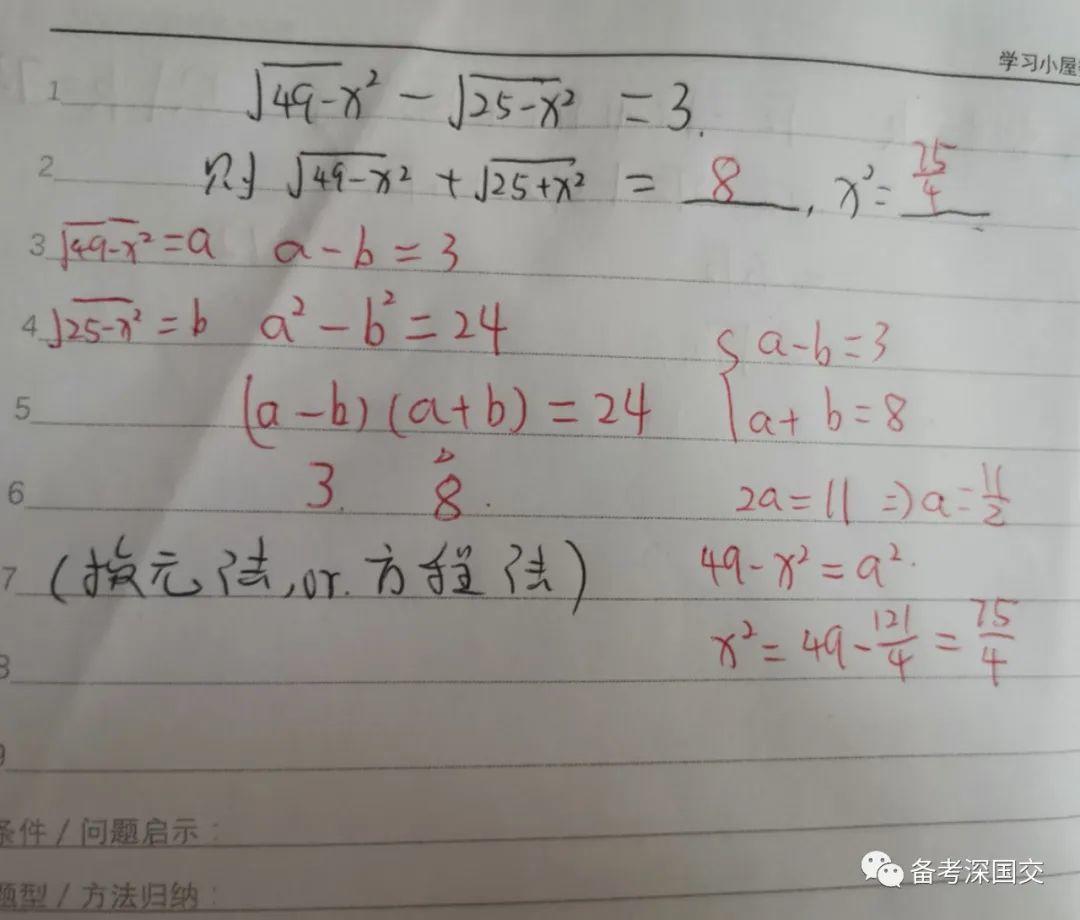 学习小屋
1 √49-x² - √25-x² = 3.
2 则 √49-x² + √25+x² = 8, x² = 75/4
3 √49-x² = a a - b = 3
4 √25-x² = b a² - b² = 24
{ a - b = 3
5 (a - b)(a + b) = 24
a + b = 8
6 3. 8.
2a = 11 => a = 11/2
7 (换元法, or. 方程法)
49 - x² = a².
x² = 49 - 121/4 = 75/4
8
9
条件 / 问题启示：
题型 / 方法归纳：
备考深国交